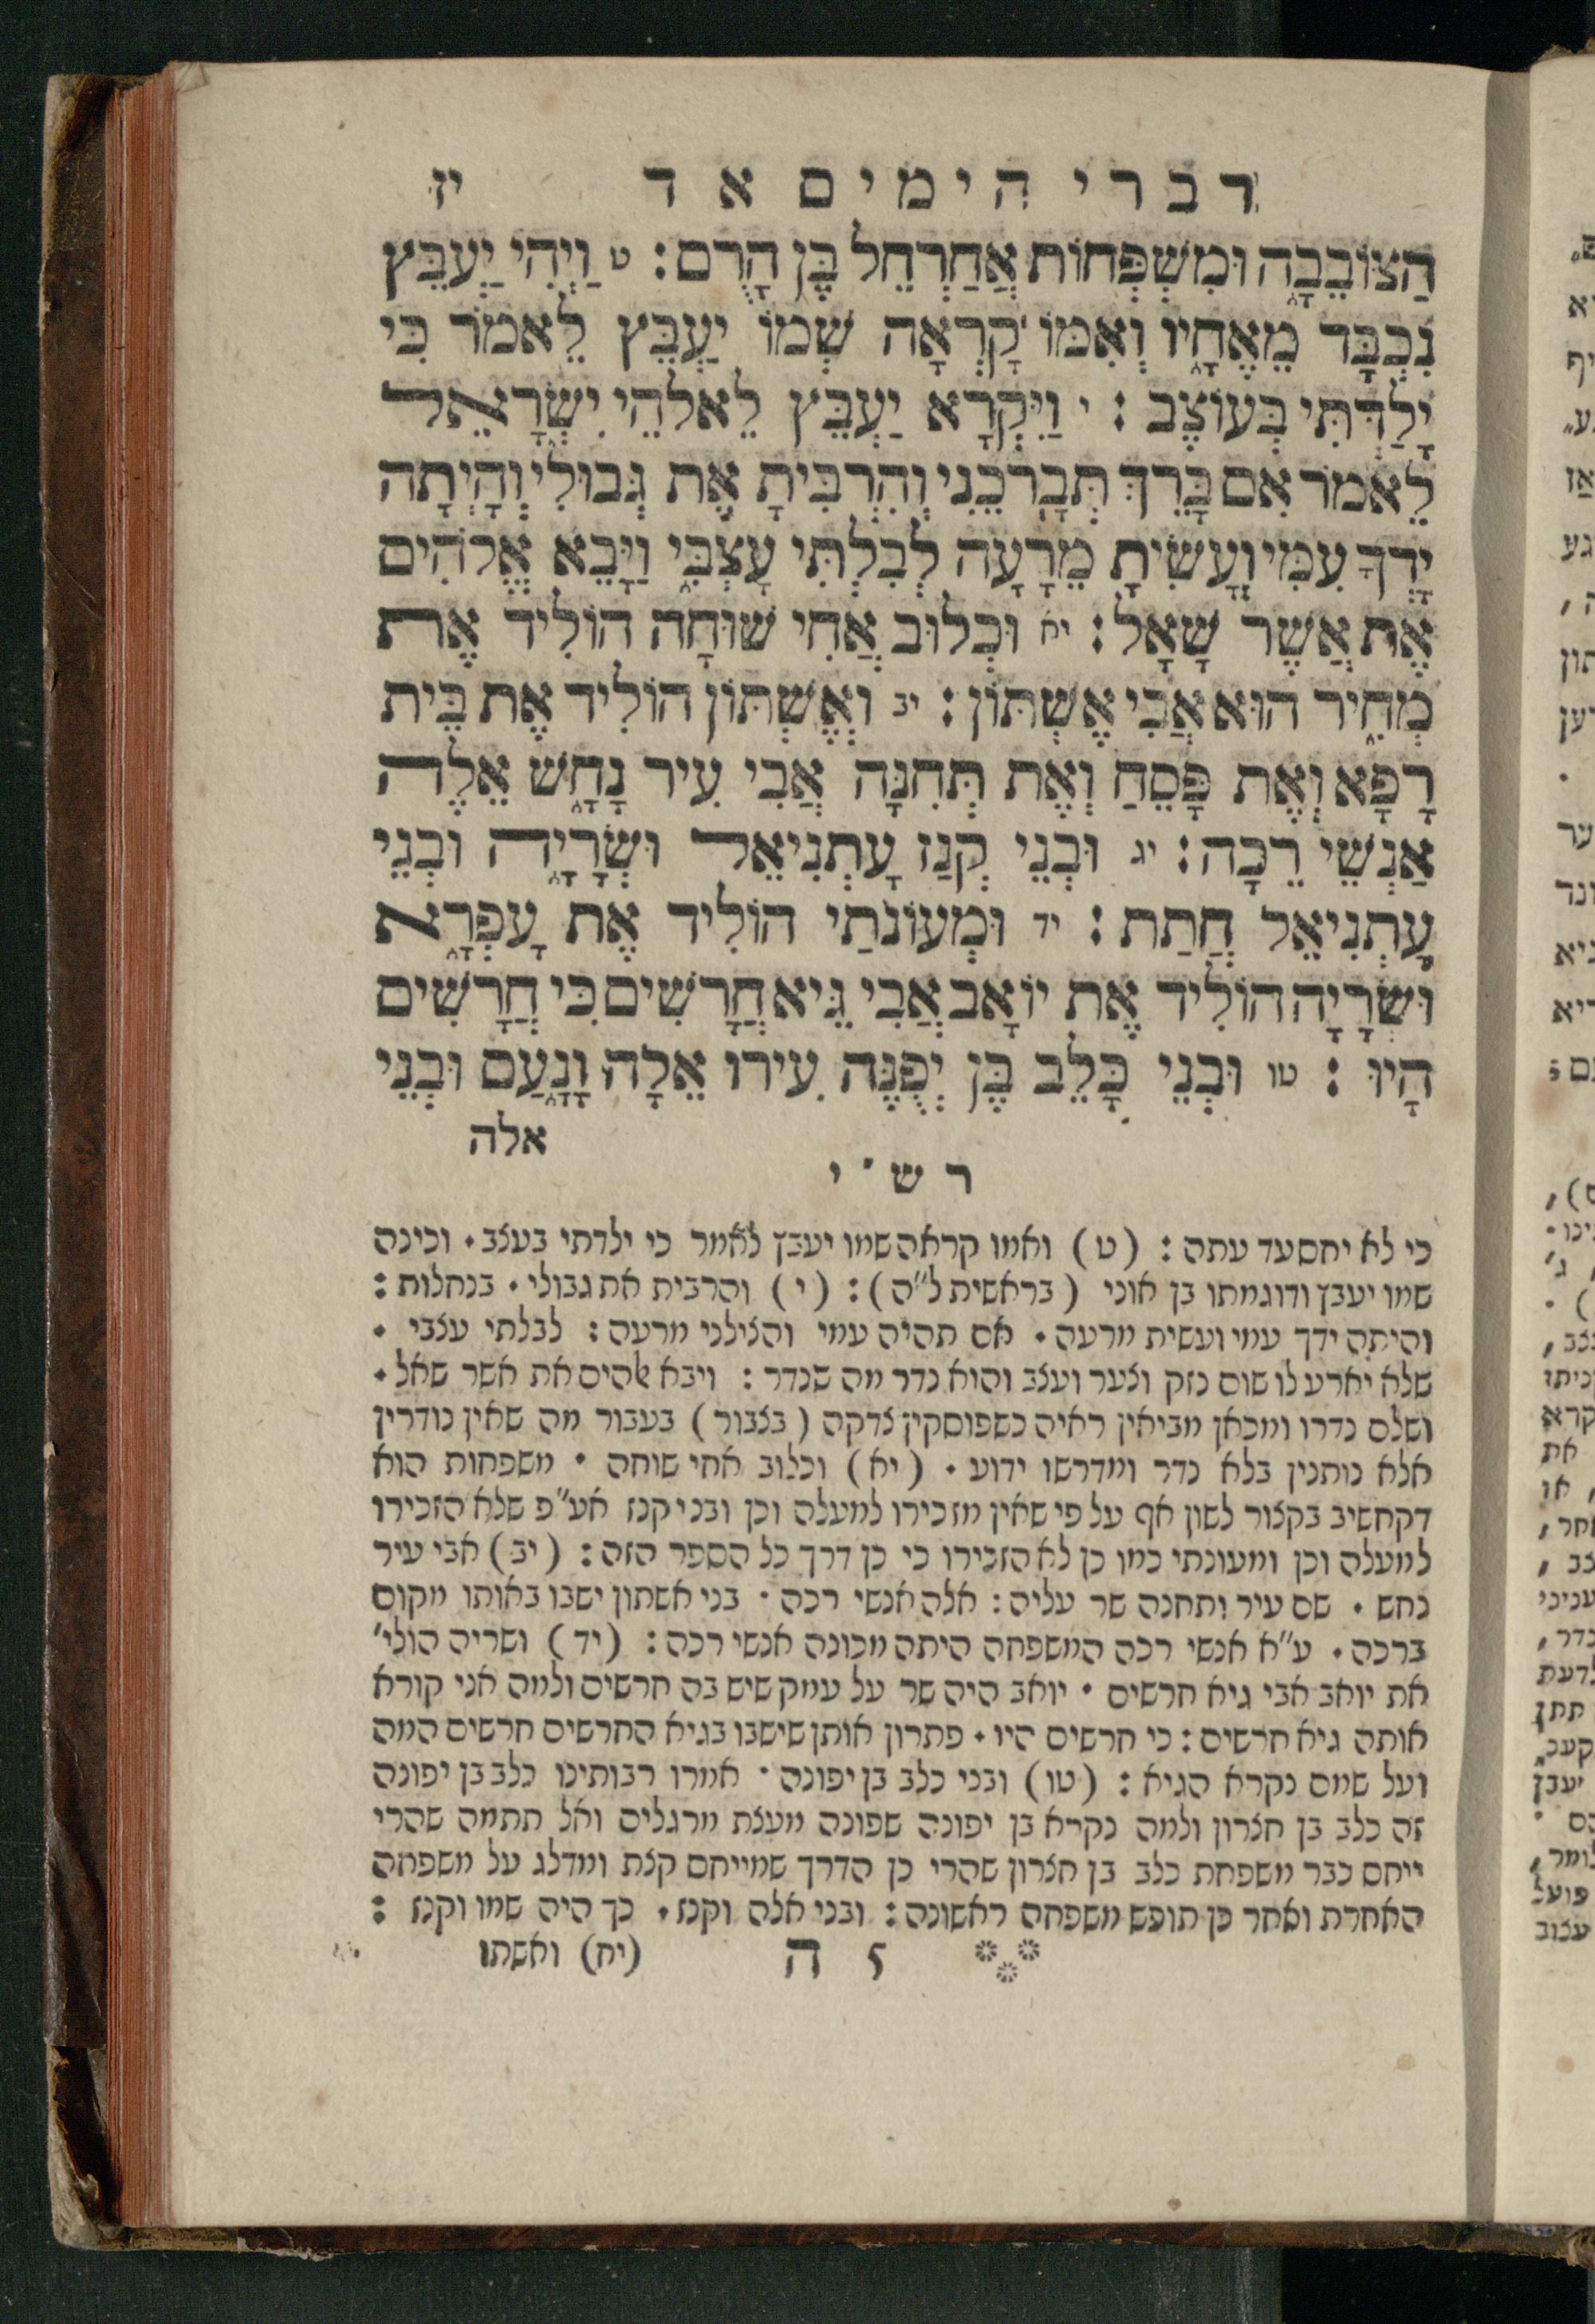 דברי הימים א ד יז
הַצּוֹבֵבָה וּמִשְׁפְּחוֹת אֲחַרְחֵל בֶּן הָרֻם : ט וַיְהִי יַעְבֵּץ
נִכְבָּד מֵאֶחָיו וְאִמּוֹ קָרְאָה שְׁמוֹ יַעְבֵּץ לֵאמֹר כִּי
יָלַדְתִּי בְּעוֹצֶב : י וַיִּקְרָא יַעְבֵּץ לֵאלֹהֵי יִשְׂרָאֵל
לֵאמֹר אִם בָּרֵךְ תְּבָרְכֵנִי וְהִרְבִּיתָ אֶת גְּבוּלִי וְהָיְתָה
יָדְךָ עִמִּי וְעָשִׂיתָ מֵרָעָה לְבִלְתִּי עָצְבִּי וַיָּבֵא אֱלֹהִים
אֶת אֲשֶׁר שָׁאָל : יא וּכְלוּב אֲחִי שׁוּחָה הוֹלִיד אֶת
מְחִיר הוּא אֲבִי אֶשְׁתּוֹן : יב וְאֶשְׁתּוֹן הוֹלִיד אֶת בֵּית
רָפָא וְאֶת פָּסֵחַ וְאֶת תְּחִנָּה אֲבִי עִיר נָחָשׁ אֵלֶּה
אַנְשֵׁי רֵכָה : יג וּבְנֵי קְנַז עָתְנִיאֵל וּשְׂרָיָה וּבְנֵי
עָתְנִיאֵל חֲתַת : יד וּמְעוֹנֹתַי הוֹלִיד אֶת עָפְרָא
וּשְׂרָיָה הוֹלִיד אֶת יוֹאָב אֲבִי גֵּיא חֲרָשִׁים כִּי חֲרָשִׁים
הָיוּ : טו וּבְנֵי כָּלֵב בֶּן יְפֻנֶּה עִירוּ אֵלָה וָנָעַם וּבְנֵי
אלה
רש״י
כי לא יחס עד עתה : (ט) ואמו קראה שמו יעבץ לאמר כי ילדתי בעצב . וכינה
שמו יעבץ ודוגמתו בן אוני (בראשית ל״ה) : (י) והרבית את גבולי . בנחלות :
והיתה ידך עמי ועשית מרעה . אם תהיה עמי והצילני מרעה : לבלתי עצבי .
שלא יארע לו שום נזק וצער ועצב והוא נדר מה שנדר : ויבא אלהים את אשר שאל .
ושלם נדרו ומכאן מביאין ראיה כשפוסקין צדקה (בצבור) בעבור מה שאין נודרין
אלא נותנין בלא נדר ומדרשו ידוע . (יא) וכלוב אחי שוחה . משפחות הוא
דקחשיב בקצור לשון אף על פי שאין מזכירו למעלה וכן ובני קנז אע״פ שלא הזכירו
למעלה וכן ומעונתי כמו כן לא הזכירו כי כן דרך כל הספר הזה : (יב) אבי עיר
נחש . שם עיר ותחנה שר עליה : אלה אנשי רכה . בני אשתון ישבו באותו מקום
ברכה . ע״א אנשי רכה המשפחה היתה מכונה אנשי רכה : (יד) ושריה הולי׳
את יואב אבי גיא חרשים . יואב היה שר על עמק שיש בה חרשים ולמה אני קורא
אותה גיא חרשים : כי חרשים היו . פתרון אותן שישבו בגיא החרשים חרשים המה
ועל שמם נקרא הגיא : (טו) ובני כלב בן יפונה . אמרו רבותינו כלב בן יפונה
זה כלב בן חצרון ולמה נקרא בן יפונה שפונה מעצת מרגלים ואל תתמה שהרי
ייחס כבר משפחת כלב בן חצרון שהרי כן הדרך שמייחס קצת ומדלג על משפחה
האחרת ואחר כן תופש משפחה ראשונה : ובני אלה וקנז . כך היה שמו וקנז :
5 ה (יח) ואשתו